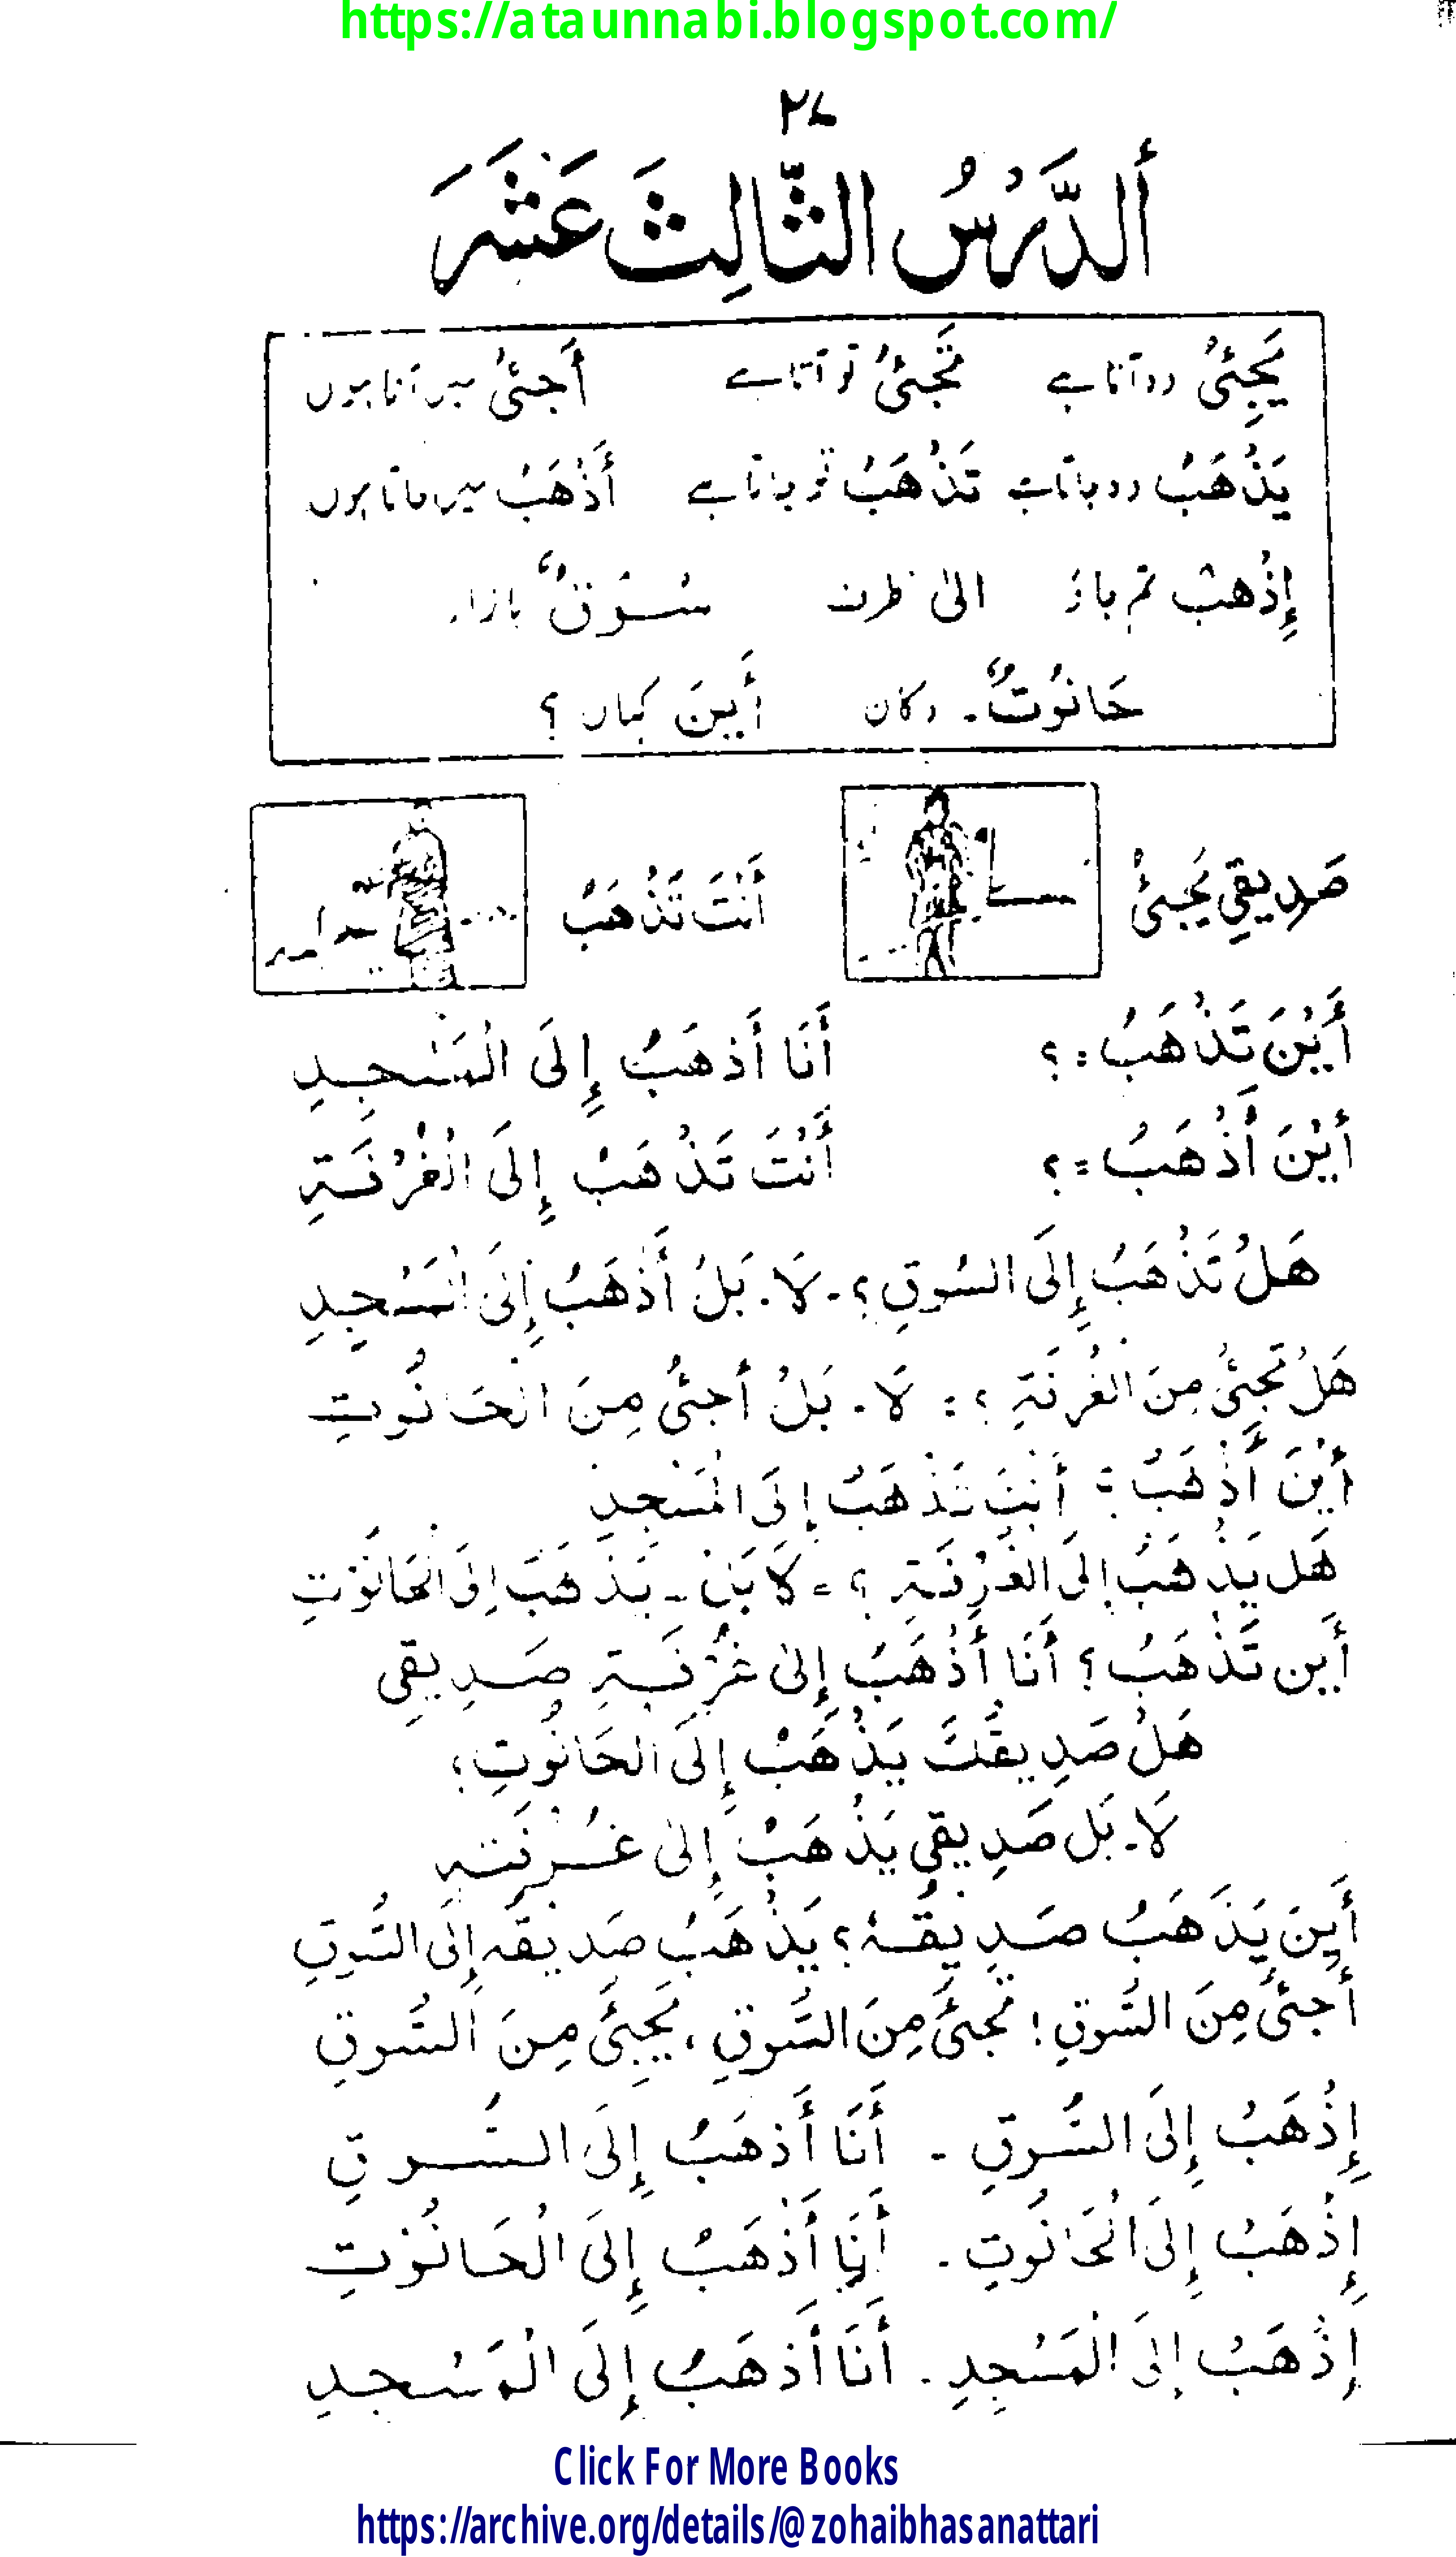 https://ataunnabi.blogspot.com/
۲۷
أَلدَّرْسُ الثَّالِثَ عَشَرَ
يَجِئُ وہ آتا ہے تَجِئُ تو آتا ہے أَجِئُ میں آتا ہوں
يَذْهَبُ وہ جاتا ہے تَذْهَبُ تو جاتا ہے أَذْهَبُ میں جاتا ہوں
إِذْهَبْ تم جاؤ الیٰ طرف سُوْقٌ بازار
حَانُوْتٌ۔ دکان أَيْنَ کہاں ؟
صَدِيقِي يَجِئُ أَنْتَ تَذْهَبُ
أَيْنَ تَذْهَبُ :؟ أَنَا أَذْهَبُ إِلَى الْمَسْجِدِ
أَيْنَ أَذْهَبُ =؟ أَنْتَ تَذْهَبُ إِلَى الْغُرْفَةِ
هَلْ تَذْهَبُ إِلَى السُوقِ ؟۔ لَا۔ بَلْ أَذْهَبُ إِلَى الْمَسْجِدِ
هَلْ تَجِئُ مِنَ الغُرْفَةِ ؟ : لَا۔ بَلْ أَجِئُ مِنَ الْحَانُوتِ
أَيْنَ أَذْهَبُ ؟ أَنْتَ تَذْهَبُ إِلَى الْمَسْجِدِ
هَل يَذْهَبُ إِلَى الْغُرْفَةِ ؟ = لَا بَلْ ۔ يَذْهَبُ إِلَى الْحَانُوْتِ
أَين تَذْهَبُ ؟ أَنَا أَذْهَبُ إِلىٰ غُرْفَةِ صَدِيقِي
هَلْ صَدِيقُكَ يَذْهَبُ إِلَى الحَانُوتِ ؟
لَا۔ بَل صَدِيقِي يَذْهَبُ إِلىٰ غُرْفَتِهِ
أَيْنَ يَذْهَبُ صَدِيقُهُ ؟ يَذْهَبُ صَدِيقُهُ إِلَى السُّوقِ
أَجِئُ مِنَ السُّوقِ ! تَجِئُ مِنَ السُّوقِ ، يَجِئُ مِنَ السُّوقِ
إِذْهَبْ إِلَى السُّوقِ ۔ أَنَا أَذْهَبُ إِلَى السُّوقِ
إِذْهَبْ إِلَى الْحَانُوتِ ۔ أَنَا أَذْهَبُ إِلَى الْحَانُوْتِ
إِذْهَبْ إِلَى الْمَسْجِدِ ۔ أَنَا أَذْهَبُ إِلَى الْمَسْجِدِ
Click For More Books
https://archive.org/details/@zohaibhasanattari